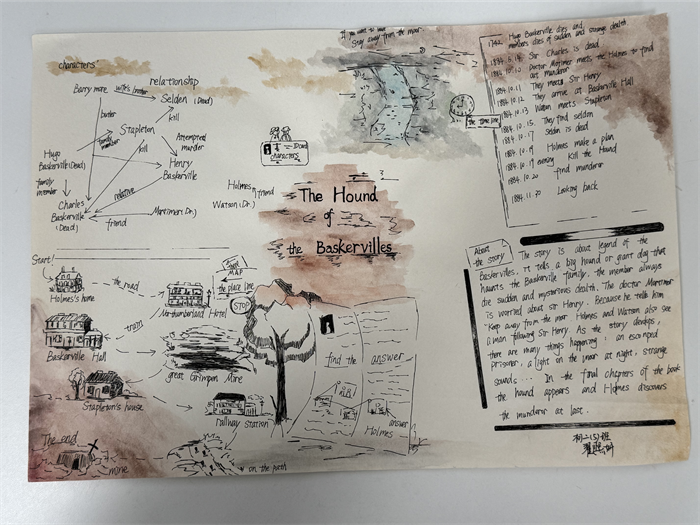 characters'
relationship
Barrymore
wife's brother
Selden (Dead)
butler
kill
Stapleton
family member
kill
Attempted murder
Hugo
Baskerville (Dead)
Henry
Baskerville
family
member
relative
Charles
Baskerville
(Dead)
friend
Mortimer (Dr.)
Holmes
Watson (Dr.)
friend
characters
If you want to live
Stay away from the moor.
The Hound
of
the Baskervilles
the time line
1742. Hugo Baskerville dies and
members dies of sudden and strange dealth
1884.5.14. Sir Charles is dead
1884.10.10 Doctor Mortimer meets the Holmes to find
out munderor
1884.10.11 They meets Sir Henry
1884.10.12 They arrive at Baskerville Hall
1884.10.13 Watson meets Stapleton
1884.10.15. They find seldon
1884.10.17 Seldon is dead
1884.10.19 Holmes make a plan
1884.10.19 evening Kill the Hound
1884.10.20 find munderor
1884.11.20 Looking back
About
the story
The story is about legend of the
Baskervilles. It tells a big hound or giant dog that
haunts the Baskerville family. the member always
die sudden and mysterious dealth. The doctor Mortimer
is worried about Sir Henry. Because he tells him
"Keep away from the moor. Holmes and Watson also see
a man following Sir Henry. As the story develops,
there are many things happening: an escaped
prisoner, a light on the moor at night, strange
sounds... In the final chapters of the book
the hound appears and Holmes discovers
the munderor at last.
初二(5)班
Start!
Holmes's home
the road
Northumberland Hotel
MAP
the place line
STOP
Baskerville Hall
train
great Grimpen Mire
Stapleton's house
railway station
The end
mine
on the path
find the answer
answer
Holmes